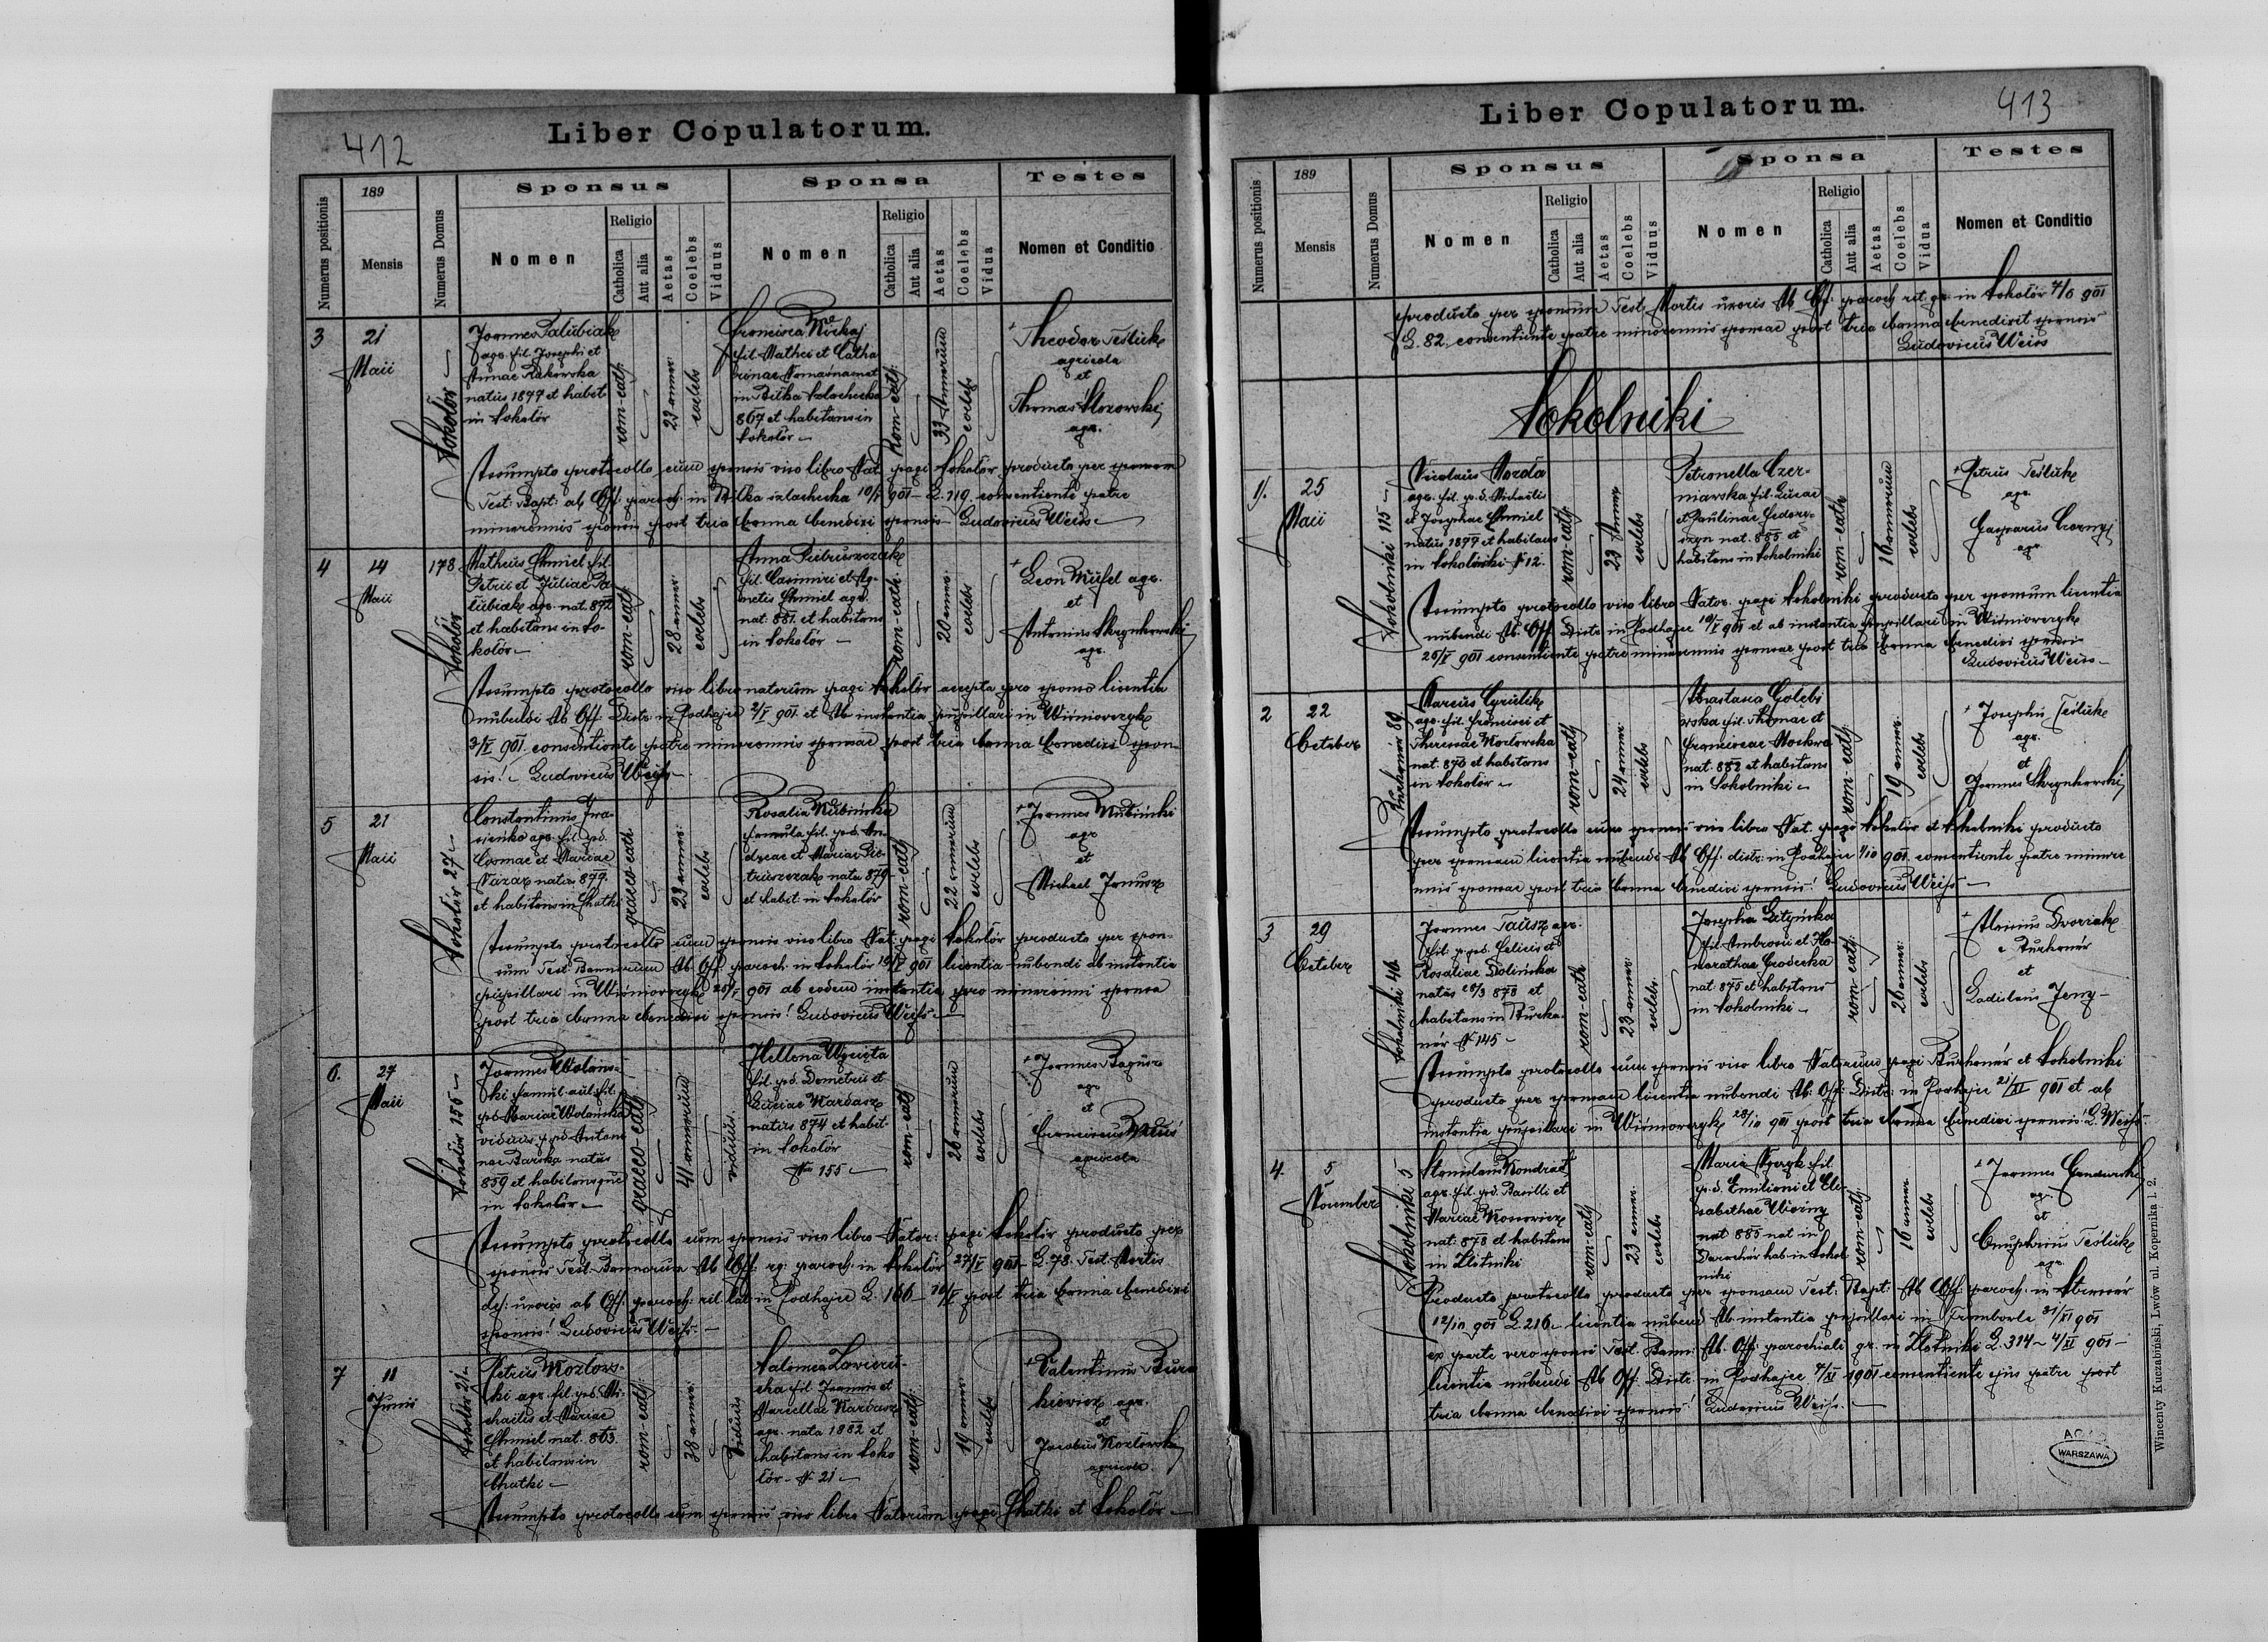 412
Liber Copulatorum.
Numerus positionis
189
Mensis
Numerus Domus
Sponsus
Nomen
Religio
Catholica
Aut alia
Aetas
Coelebs
Viduus
Sponsa
Nomen
Religio
Catholica
Aut alia
Aetas
Coelebs
Vidua
Testes
Nomen et Conditio
3
21
Maii
Sokolów
Joannes Palubiak
agr. fil. Josephi et
Annae Rakowska
natus 1877 et habit
in Sokolów
rom-cath.
23 annor.
coelebs
Francisca
fil. Mathei et Catha
rinae
in Bilka szlachecka
867 et habitans in
Sokolów
rom-cath.
33 annorum
coelebs
Theodor Teśluk
agricola
et
Thomas
agr.
Assumpto protocollo cum sponsis viso libro Nat. pagi Sokolów producto per sponsam
Test. Bapt. ab Off. paroch. in Bilka szlachecka 901 L. 119. consentiente patre
minorennis sponsi post tria banna benedixi sponsis Ludovicus Weiss
4
14
Maii
178
Sokolów
Matheus Chmiel fil.
Petri et Juliae Pa
lubiak agr. nat. 872
et habitans in So-
kolów
rom-cath.
28 annor.
coelebs
Anna Pietruszczak
fil. Casimiri et Ag-
netis Chmiel agr.
nat. 881. et habitans
in Sokolów
rom-cath.
20 annor.
coelebs
Leon Musel agr.
et
Antonius Skrynkowski
agr.
Assumpto protocollo viso libro natorum pagi Sokolów accepta pro sponso licentia
nubendi Ab Off. Distr. in Podhajce 2/V 901. et Ab instantia pupillari in Wiśniowczyk
3/V 901. consentiente patre minorennis sponsae post tria banna benedixi spon-
sis! Ludovicus Weiss
5
21
Maii
Sokolów 27
Constantinus
agr. fil. p.d.
Cosmae et Mariae
natus 879.
et habitans in Chatki
graeco-cath.
23 annor.
coelebs
Rosalia Mubińska
famula fil. p.d. An-
dreae et Mariae Pie-
truszczak nata 879
et habit. in Sokolów
rom-cath.
22 annorum
coelebs
Joannes Mubiński
agr.
et
Michael Janusz
Assumpto protocollo cum sponsis viso libro Nat. pagi Sokolów producto per spon-
sum Test. Bannorum Ab Off. paroch. in Sokolów 901 licentia nubendi ab instantia
pupillari in Wiśniowczyk 901 ab eodem instantia pro minorenni sponsa
post tria banna benedixi sponsis! Ludovicus Weiss
6.
27
Maii
Sokolów 155
Joannes Wolans-
ki famul. fil.
p.d. Mariae Wolańska
viduus p. p.d. Antoni
nae Barska natus
859 et habitansque
in Sokolów
graeco-cath.
41 annorum
viduus
Hellena
fil. p.d. Demetrii et
Luciae Karbasz
natus 874 et habit
in Sokolów
No 155
rom-cath.
26 annorum
coelebs
Joannes
agr.
et
Franciscus
agricola
Assumpto protocollo cum sponsis viso libro Nator. pagi Sokolów producto per
sponsos Test. Bannorum Ab Off. paroch. in Sokolów 27/V 901 L. 78. Test. Mortis
def. uxoris ab Off. paroch. rit. lat. in Podhajce L. 166 post tria banna benedixi
sponsis! Ludovicus Weiss.
7
11
Junii
Sokolów 21.
Petrus Kozlows-
ki agr. fil. p.d. Mi-
chaelis et Mariae
Chmiel nat. 863
et habitans in
Chatki
rom-cath.
38 annor.
Viduus
Salomea
fil. Joannis et
Marcellae Karbasz
agr. nata 1882 et
habitans in Soko
lów N. 21
rom-cath.
19 annor.
coelebs
Valentinus
agr.
et
Jacobus Kozlowski
agricola.
Assumpto protocollo cum sponsis viso libro Natorum pagi Chatki et Sokolów
413
Liber Copulatorum.
Numerus positionis
189
Mensis
Numerus Domus
Sponsus
Nomen
Religio
Catholica
Aut alia
Aetas
Coelebs
Viduus
Sponsa
Nomen
Religio
Catholica
Aut alia
Aetas
Coelebs
Vidua
Testes
Nomen et Conditio
producto per sponsum Test. Mortis uxoris Ab Off. paroch. rit. gr. in Sokolów 4/6 901
L. 82. consentiente patre minorennis sponsae post tria banna benedixit sponsis
Ludovicus Weiss
Sokolniki
1.
25
Maii
Sokolniki 115
Nicolaus
agr. fil. p.d. Michaelis
et Josephae Chmiel
natus 1877 et habitans
in Sokolniki N 12.
rom-cath
23 Annor.
coelebs
Petronella Czer-
niawska fil. Lucae
et Paulinae
nat. 885 et
habitans in Sokolniki
rom-cath
16 annorum
coelebs
Petrus Teśluk
agr.
Gasparus Czarny
agr.
Assumpto protocollo viso libro Nator. pagi Sokolniki producto per sponsum licentia
nubendi Ab. Off. Distr. in Podhajce 901 et ab instantia pupillari in Wiśniowczyk
25/V 901 consentiente patre minorennis sponsae post tria banna benedixi sponsis
Ludovicus Weiss
2
22
October
Burkanów 89
Marcus Cyrulik
agr. fil. Francisci et
Theresiae Kozłowska
nat. 876 et habitans
in Sokolów
rom-cath
24 annor.
coelebs
Anastasia Golębi
owska fil. Thomae et
Franciscae
nat. 882 et habitans
in Sokolniki
rom-cath.
19 annor.
coelebs
Josephus Teśluk
agr.
et
Joannes Skrynkowski
Assumpto protocollo cum sponsis viso libro Nat. pagi Sokolów et Sokolniki producto
per sponsam licentia nubendi Ab Off. distr. in Podhajce 901. consentiente patre minore
nnis sponsae post tria banna benedixi sponsis! Ludovicus Weiss
3
29
October
Sokolniki 46
Joannes Tausz agr.
fil. p.d. Felicis et
Rosaliae Dolińska
natus 878 et
habitans in Burka-
nów N 145
rom-cath
23 annor.
coelebs
Josepha
fil. Ambrosii et Ho-
norathae
nat. 875 et habitans
in Sokolniki
rom-cath.
26 annor.
coelebs
Aloisius Dworzak
e Burkanów
et
Ladislaus Jerry
Assumpto protocollo cum sponsis viso libro Natorum pagi Burkanów et Sokolniki
producto per sponsam licentia nubendi Ab. Off. Distr. in Podhajce 901 et ab
instantia pupillari in Wiśniowczyk 28/10 901 post tria banna benedixi sponsis! L. Weiss
4.
5
November
Sokolniki 5
Stanislaus Kondrat
agr. fil. p.d. Basilii et
Mariae
nat. 878 et habitans
in Zlotniki
rom-cath
23 annor.
coelebs
Maria fil.
p.d. Emiliani et Eli-
sabethae
nat 885 nat in
hab in Sokol
niki
rom-cath.
16 annor.
coelebs
Joannes
agr.
et
Onuphrius Teśluk
agr.
Producto protocollo producto per sponsam Test. Bapt. Ab Off. paroch. in
12/10 901 L. 216. licentia nubendi Ab instantia pupillari in Trembowla 901
ex parte vero sponsi Test. Bann. Ab. Off. parochiali gr. in Zlotniki L. 314 901
licentia nubendi Ab Off. Distr. in Podhajce 1901 consentiente ejus patre post
tria banna benedixi sponsis! Ludovicus Weiss.
WARSZAWA
Wincenty Kuczabiński, Lwów ul. Kopernika l. 2.